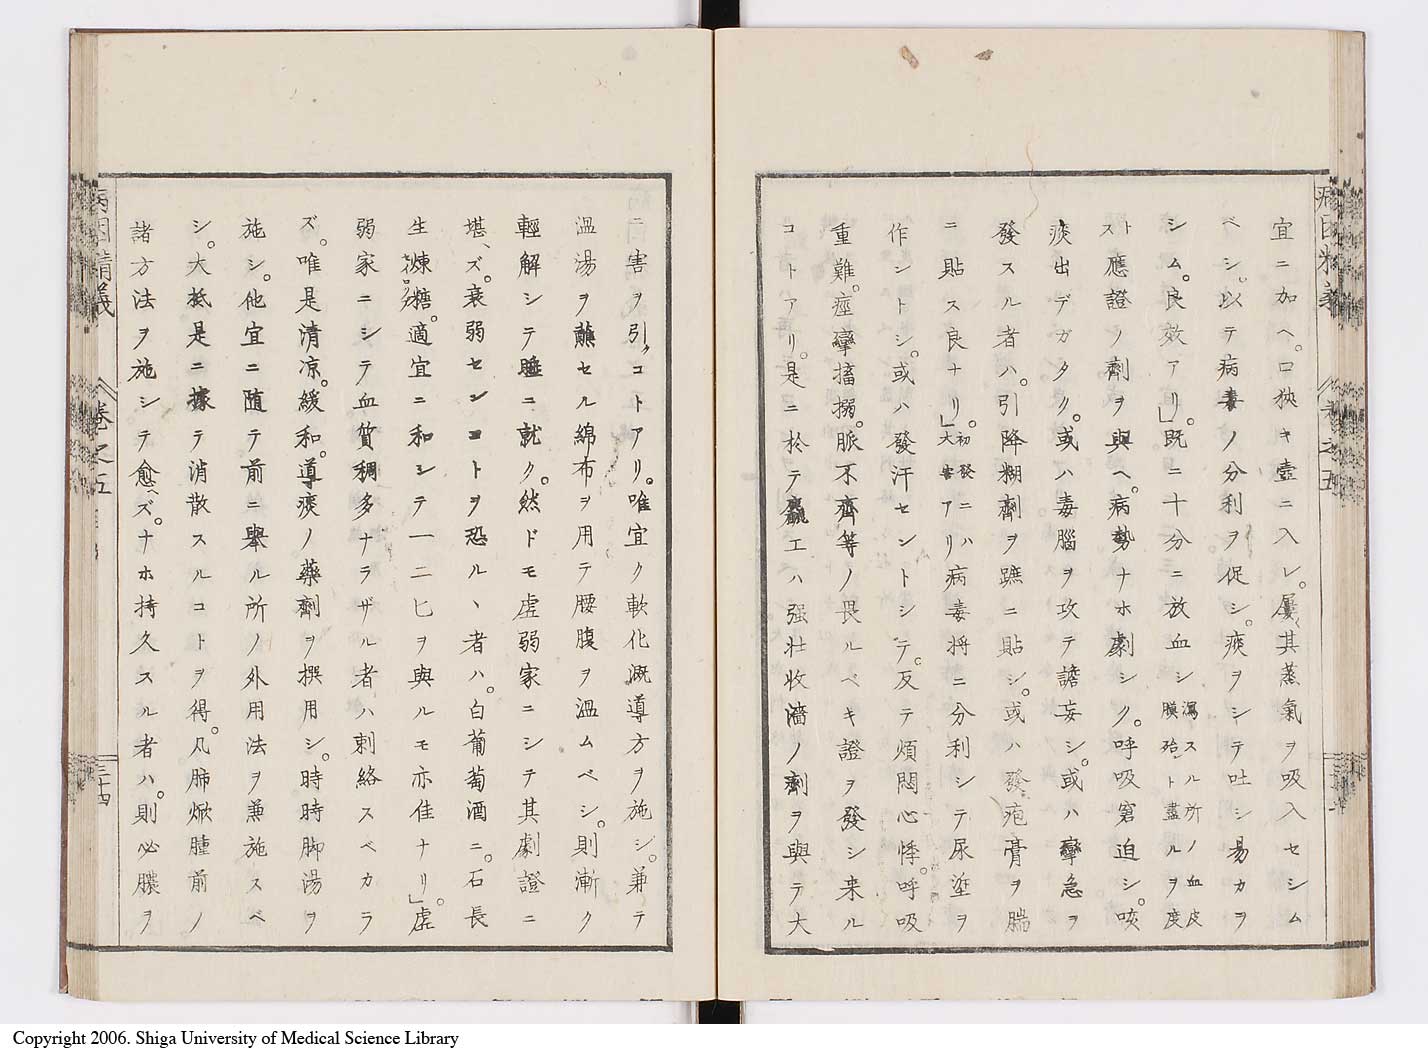 宜ニ加ヘ。口狹キ壺ニ入レ。屢〻其蒸氣ヲ吸入セシム
ベシ。以テ病毒ノ分利ヲ促シ。痰ヲシテ吐シ易カヲ
シム。良效アリ」既ニ十分ニ放血シ瀉スル所ノ血皮膜殆ント盡ルヲ度
トス應證ノ劑ヲ與ヘ。病勢ナホ劇シク。呼吸窘迫シ。咳
痰出デガタク。或ハ毒腦ヲ攻テ譫妄シ。或ハ攣急ヲ
發スル者ハ。引降糊劑ヲ蹠ニ貼シ。或ハ發疱膏ヲ腨
ニ貼ス良ナリ」。初發ニハ大害アリ病毒將ニ分利シテ尿塗ヲ
作ントシ。或ハ發汗セントシテ。反テ煩悶心悸。呼吸
重難。痙攣搐搦。脈不齊等ノ畏ルベキ證ヲ發シ来ル
コトアリ。是ニ於テ麤工ハ强壯收濇ノ劑ヲ與テ大
ニ害ヲ引クコトアリ。唯宜ク軟化漑導方ヲ施シ。兼テ
溫湯ヲ蘸セル綿布ヲ用テ腰腹ヲ溫ムベシ。則漸ク
輕解シテ睡ニ就ク。然ドモ虛弱家ニシテ其劇證ニ
堪ズ。衰弱センコトヲ恐ルヽ者ハ。白葡萄酒ニ。石長
生煉糖。適宜ニ和シテ一二匕ヲ與ルモ亦佳ナリ」。虛
弱家ニシテ血質稠多ナラザル者ハ刺絡スベカラ
ズ。唯是清凉。緩和。導痰ノ藥劑ヲ撰用シ。時時脚湯ヲ
施シ。他宜ニ随テ前ニ舉ル所ノ外用法ヲ兼施スベ
シ。大抵是ニ據テ消散スルコトヲ得。凡肺焮腫前ノ
諸方法ヲ施シテ愈ベズ。ナホ持久スル者ハ。則必膿ヲ
病因精義
卷之五
三十四
Copyright 2006. Shiga University of Medical Science Library